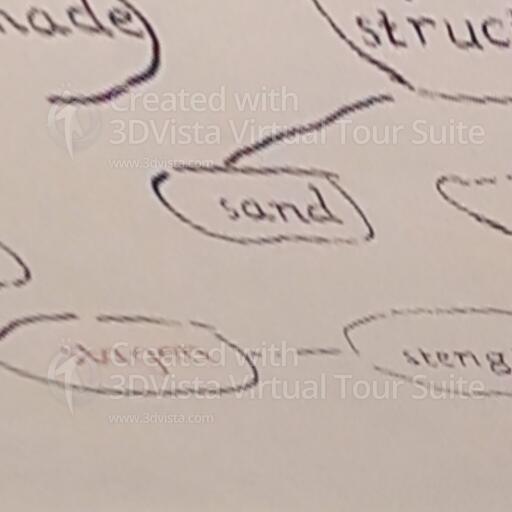 nade
struc
Created with
3DVista Virtual Tour Suite
www.3dvista.com
sand
Created with
steng
3DVista Virtual Tour Suite
www.3dvista.com